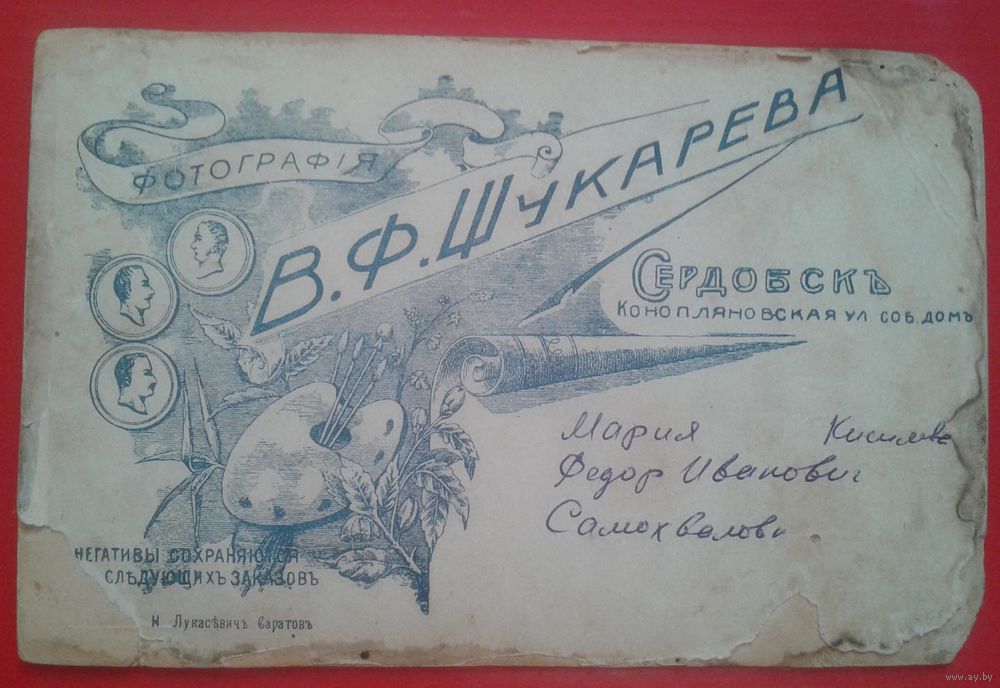 ФОТОГРАФІЯ
В.Ф.ЩУКАРЕВА
СЕРДОБСКЪ
КОНОПЛЯНОВСКАЯ УЛ СОБ.ДОМЪ
Мария
Федор Иванович
Самохвалов
НЕГАТИВЫ СОХРАНЯЮТСЯ
СЛѢДУЮЩИХЪ ЗАКАЗОВЪ
И Лукасѣвичъ Саратовъ
www.ay.by